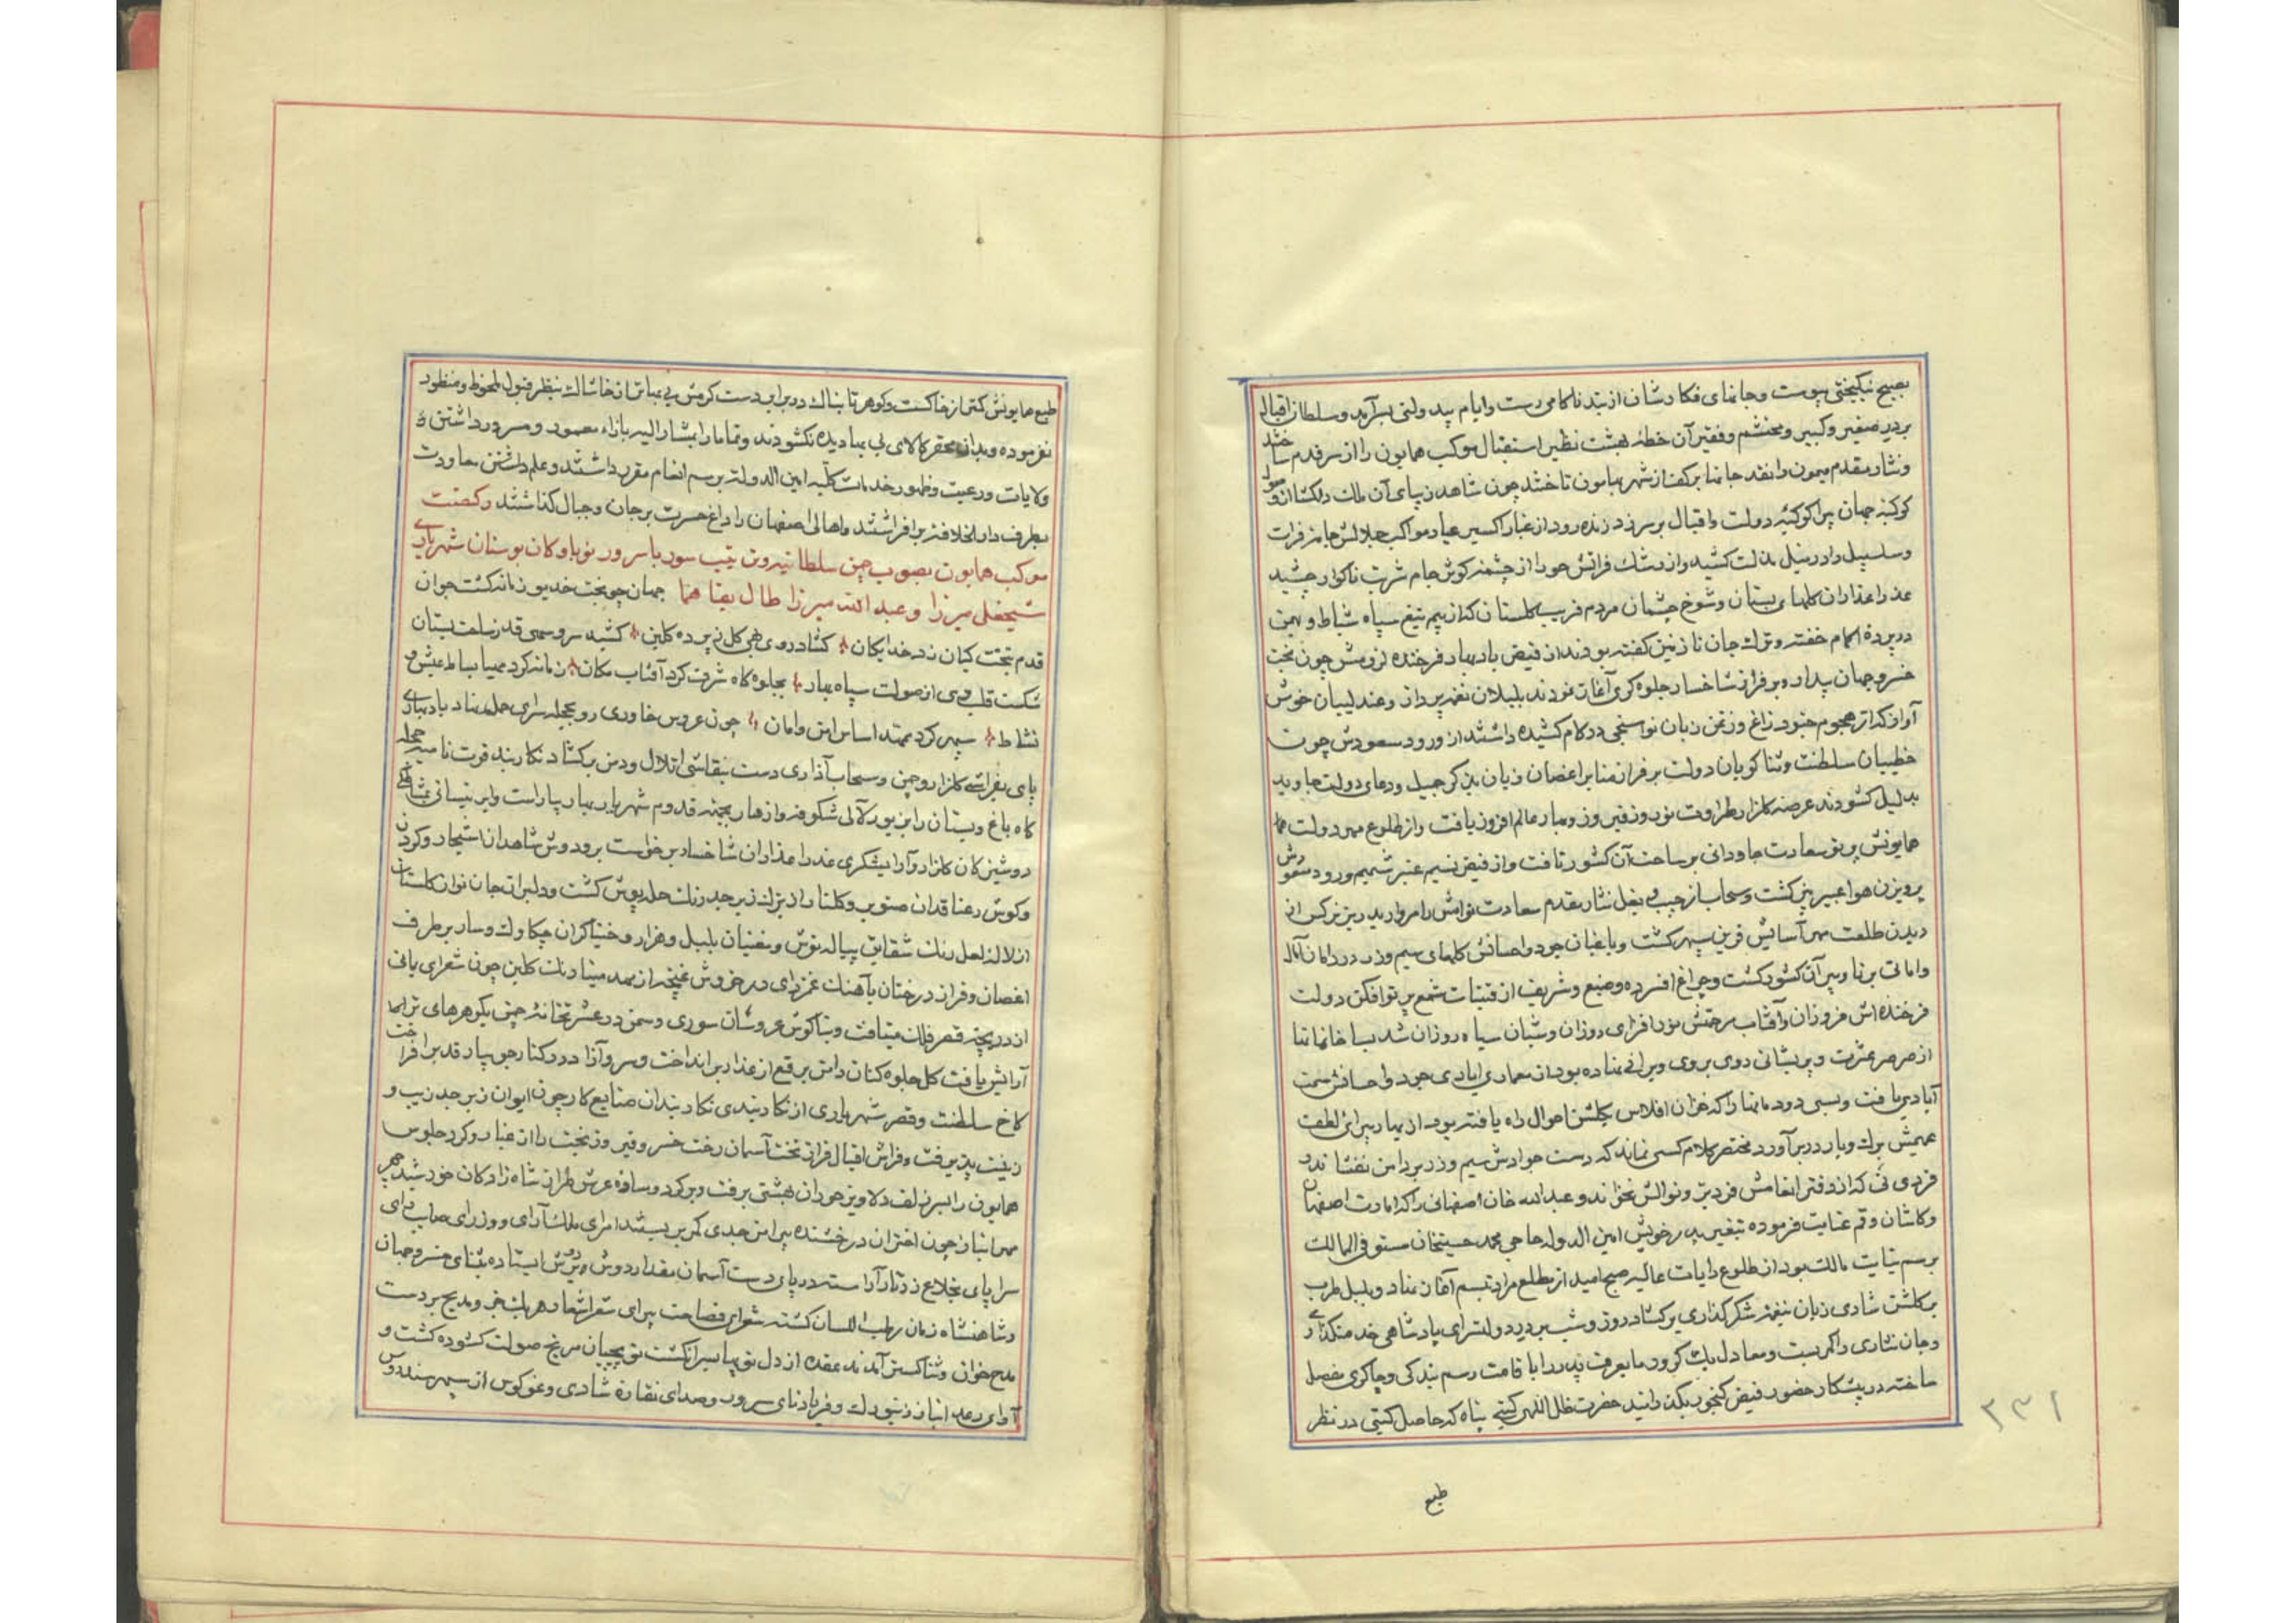 بصبح نیکبختی پیوست و جانهای فکارشان از بند ناکامی رست و ایام بیدولتی بسر آمد و سلطان اقبال
بر در صغیر و کبیر و محتشم و فقیر آن خطهٔ بهشت نظیر استقبال موکب همایون را از سر قدم ساختند
و نثار مقدم میمون را نقد جانها بر کف از شهر بهامون تاختند چون شاهد زیبای آن ملک دلکشا از وصول
کوکبهٔ جهان پیرا کوکبهٔ دولت و اقبال بر سر زد زنده رود از غبار اکسیر عیار مواکب جلالش جامه فرات
و سلسبیل را در نیل مذلت کشید و از رشک فراتش حور از چشمهٔ کوثر جام شربت ناکوار چشید
عذرا عذاران کلهای بستان و شوخ چشمان مردم فریب کلستان که از بیم تیغ سپاه شباط و بهمن
در پردهٔ اکمام خفته و ترک جان نازنین کفته بودند از فیض باد بهار فرخنده لزومش چون بخت
خسرو جهان بیدار و بر فراز شاخسار جلوه کری آغاز نمودند بلبلان نغمه پرداز و عندلیبان خوش
آواز که از هجوم جنود زاغ و زغن زبان نواسنجی در کام کشیده داشتند از ورود مسعودش چون
خطیبان سلطنت و ثناکویان دولت بر فراز منابر اغصان زبان بذکر جمیل و دعای دولت جاوید
بدلیل کشودند عرصهٔ کلزار طراوت نوروز فیروز و بهار عالم افروز یافت و از طلوع مهر دولت
همایونش پرتو سعادت جاودانی بر ساحت آن کشور تافت و از فیض نسیم عنبر شمیم ورود مسعودش
پرویزن هوا عبیر بیز کشت و سحاب از جیب و بغل نثار مقدم سعادت توامش را مروارید ریز نرکس از
دیدن طلعت مهر آسایش قرین سپهر کشت و باغبان جود و احسانش کلهای سیم و زر در دامان آمال
و امانی برنا و پیر آن کشور کشت و چراغ افسرده وضیع و شریف از شمع پرتوافکن دولت
فرخنده اش فروزان و آفتاب مرحمتش نور افزای روزان و شبان سیاه روزان شد بسا خانمانها
از صرصر عسرت و پریشانی روی بروی ویرانی نهاده بود از معماری ایادی جود و احسانش سمت
آبادی یافت و بسی دودمانها را که خزان افلاس بکلشن احوال راه یافته بود از بهار پیرائی لطف
عمیمش برک و بار در بر آورد مختصر کلام کسی نماند که دست جوادش سیم و زر بر دامن نفشاند و
فردی نی که از دفتر انعامش فرد بر و نوالش نخواند و عبدالله خان اصفهانی را که امارت اصفهان
و کاشان و قم عنایت فرموده پدر خویش امین الدوله حاجی محمد حسینخان مستوفی الممالک
برسم نیابت مالک بود از طلوع رایات عالیه صبح امید از مطلع مراد تبسم آغاز نهاد و بلبل طرب
بر کلشن شادی زبان بنغمهٔ شکرگذاری برکشاد روز و شب بر در دولتسرای پادشاهی خدمتکذاری
و جان نثاری را کمر بست و معادل یک کرور ما یعرف پدر را با قامت رسم بندکی و چاکری مفصل
ساخته در پیشکار حضور فیض کنجور بکذرانید حضرت ظل اللهی کیتی پناه که حاصل کیتی در نظر
طبع
۳۳۱
طبع همایونش کمتر از خاکست و کوهر تابناک در برابر دست کرمش بی بهاتر از خاشاک بنظر قبول ملحوظ و منظور
نفرموده و بدان محقر کالای بی بها دیده نکشودند و تماما را بمشار الیه بازاء معمور و مسرور داشتن
ولایات و رعیت و ظهور خدمات کلیه امین الدوله برسم انعام مقرر داشتند و علم داشتن معاودت
بطرف دار الخلافه برافراشتند و اهالی اصفهان را داغ حسرت بر جان و جبال کذاشتند در کضت
موکب همایون بصوب چمن سلطانیه و ترتیب سور با سرور نوباوکان بوستان شهریاری
شیخعلی میرزا و عبدالله میرزا طال بقاهما جهان چو بخت خدیو زمانه کشت جوان
قدم بتخت کیان زد خدایکان کشاد روی بهی کل ز پرده کلبن کشید سر و سهی قد ز ساحت بستان
شکست قلب دی از صولت سپاه بهار بجلوه کاه شرف کرد آفتاب مکان زمانه کرد مهیا بساط عیش و
نشاط سپهر کرد ممهد اساس امن و امان چون عروس خاوری رو بحجله سرای حمل نهاد باد بهاری
پای بفراشی کلزار و چمن و سحاب آذاری دست بنقاشی اتلال و دمن برکشاد نکاربند قوت نامیه حجله
کاه باغ و بستان را بزیور لآلی شکوفه و ازهار بجهه قدوم شهریار بهار بیاراست و ابر نیسانی بمشاطکی
دوشیزکان کلزار و آرایشکری عذرا عذاران شاخسار برخواست بر و دوش شاهدان اشجار و کردن
و کوش رعنا قدان صنوبر و کلنار از برک زبرجد رنک حله پوش کشت و دلبران جان نواز کلستان
از لاله لعل رنک شقایق پیاله نوش و مغنیان بلبل و هزار و خنیاکران چکاوک و سار بر طرف
اغصان و فراز درختان بآهنک غمزدای در خروش غنچه از مهد مینا رنک کلبن چون شعرای یمانی
از دریچهٔ قصر فلک میتافت و بناکوش عروسان سوری و سمن در عشرتخانهٔ چمن بکوهرهای تر اما
آرایش یافت کل جلوه کنان دامن برقع از عذار برانداخت و سرو آزاد در کنار جویبار قد برافراخت
کاخ سلطنت و قصر شهریاری از نکاربندی نکاربندان صنایع کار چون ایوان زبرجد زیب و
زینت پذیرفت و فراش اقبال فراز تخت آسمان رخت خسرو فیروز بخت را از غبار و کرد جلوس
همایون را بسر زلف دلاویز حوران بهشتی برفت و برکرد وساده عرش طراز شاهزادکان خورشید چهر
مهرانباز چون اختران درخشنده پیرامن جدی کمر بر بستند امرای ملک آرای و وزرای صایب رای
سراپای بخلاع زرتار آراسته در پای دست آسمان مقدار دوش بر دوش ایستاده بثنای خسرو جهان
و شاهنشاه زمان رطب اللسان کشته شعرای فصاحت پیرای شعری شعار هر یک خبر و مدیح بر دست
مدح خوان و ثنا کستر آمدند عقده از دل توپها بسرانکشت توپچیان مریخ صولت کشوده کشت و
آوای رعد انباز زنبورک و فریاد نای سرور و صدای نقاره شادی و غو کوس از سپهر سندروس